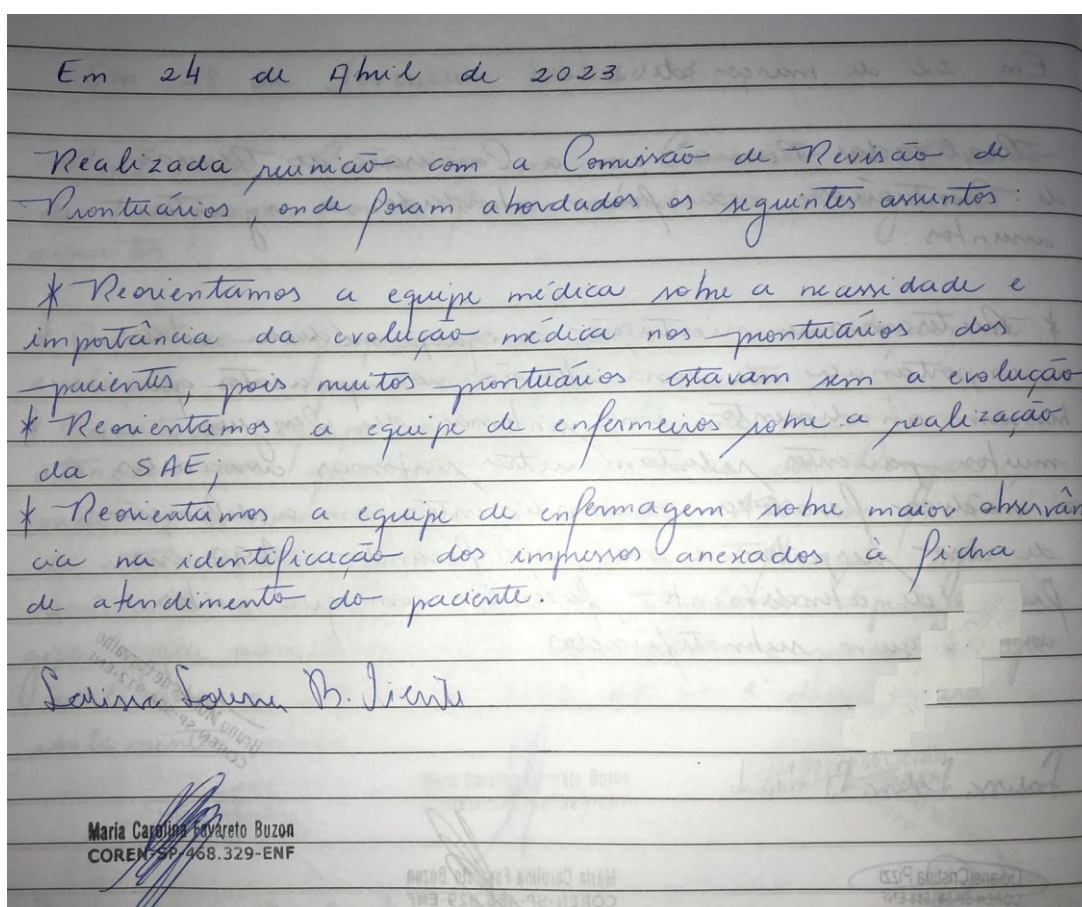 Em 24 de Abril de 2023
Realizada reunião com a Comissão de Revisão de
Prontuários, onde foram abordados os seguintes assuntos:
* Reorientamos a equipe médica sobre a necessidade e
importância da evolução médica nos prontuários dos
pacientes, pois muitos prontuários estavam sem a evolução
* Reorientamos a equipe de enfermeiros sobre a realização
da SAE;
* Reorientamos a equipe de enfermagem sobre maior observân
cia na identificação dos impressos anexados à ficha
de atendimento do paciente.
B.
Maria Carolina Favareto Buzon
COREN-SP-468.329-ENF